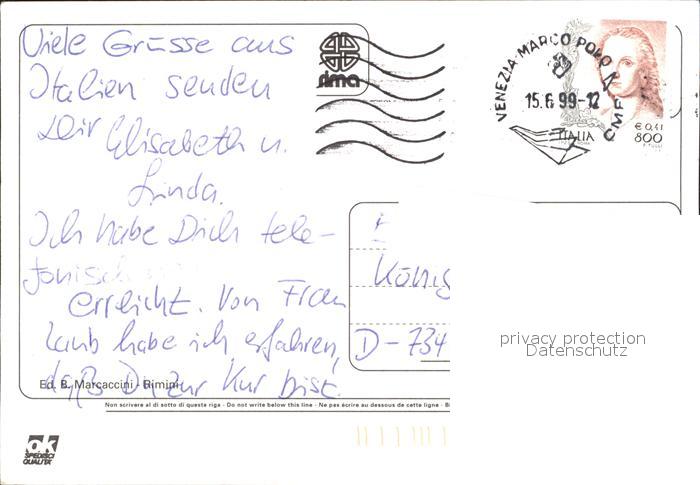 Viele Grüsse aus
Italien senden
Dir Elisabeth u.
Linda.
Ich habe Dich tele-
fonisch
erreicht. Von Frau
Laub habe ich erfahren,
daß Du zur Kur bist.
Ed. B. Marcaccini - Rimini
Non scrivere al di sotto di questa riga - Do not write below this line - Ne pas écrire au dessous de cette ligne - Bi
ok
SPEDISCI
QUALITÀ
sima
VENEZIA-MARCO POLO CMP
15.6.99-12
ITALIA
€ 0,41
800
König
D-734
privacy protection
Datenschutz